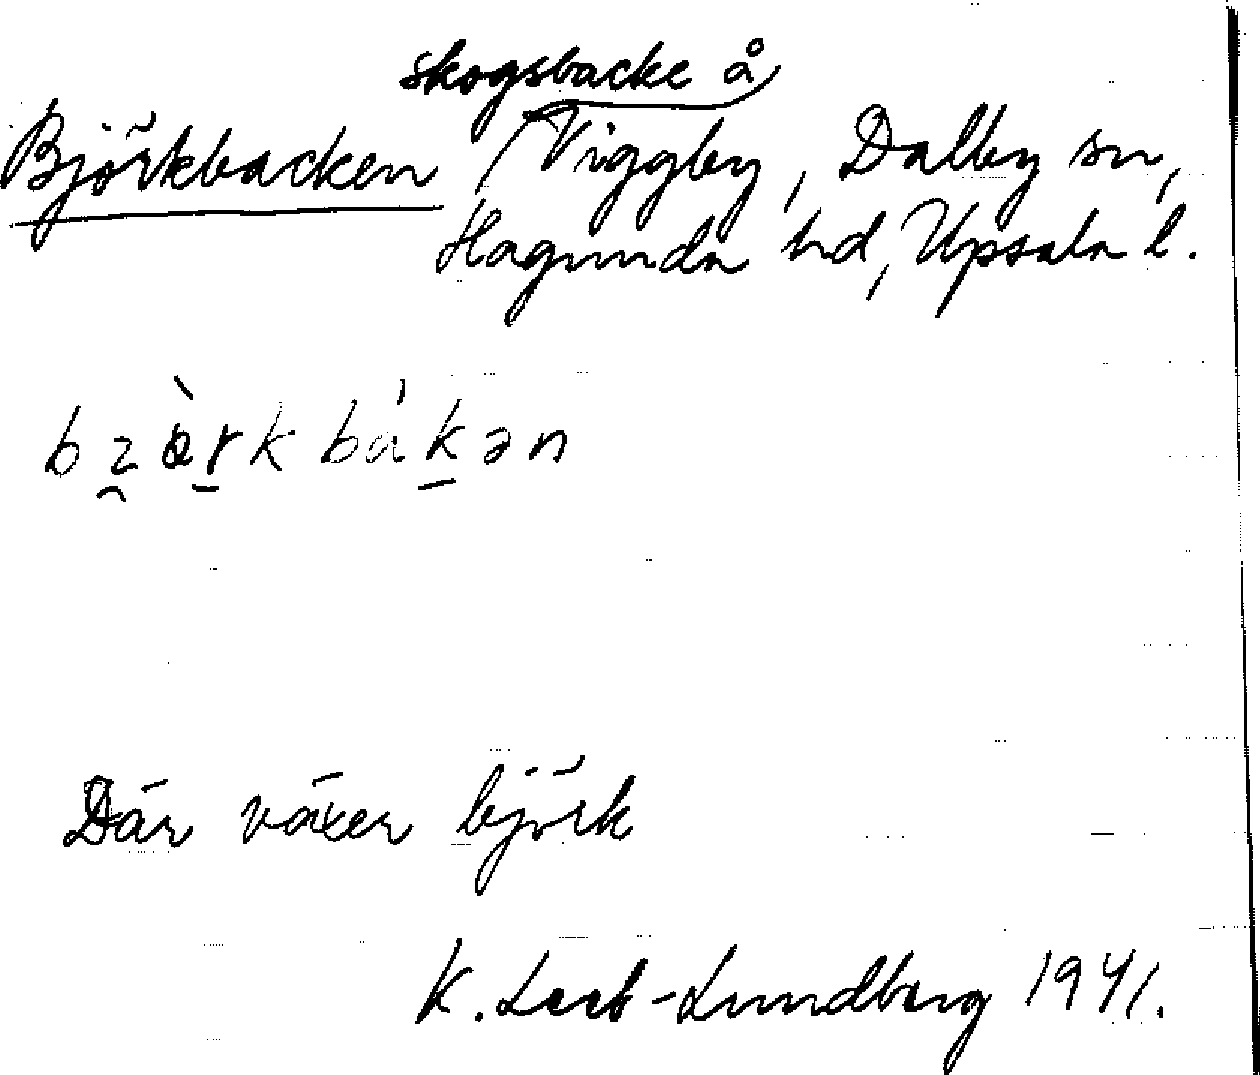 skogsbacke å
Björkbacken Viggby, Dalby sn,
Hagunda hd, Upsala l.
Där växer björk
K. Leeb-Lundberg 1941.